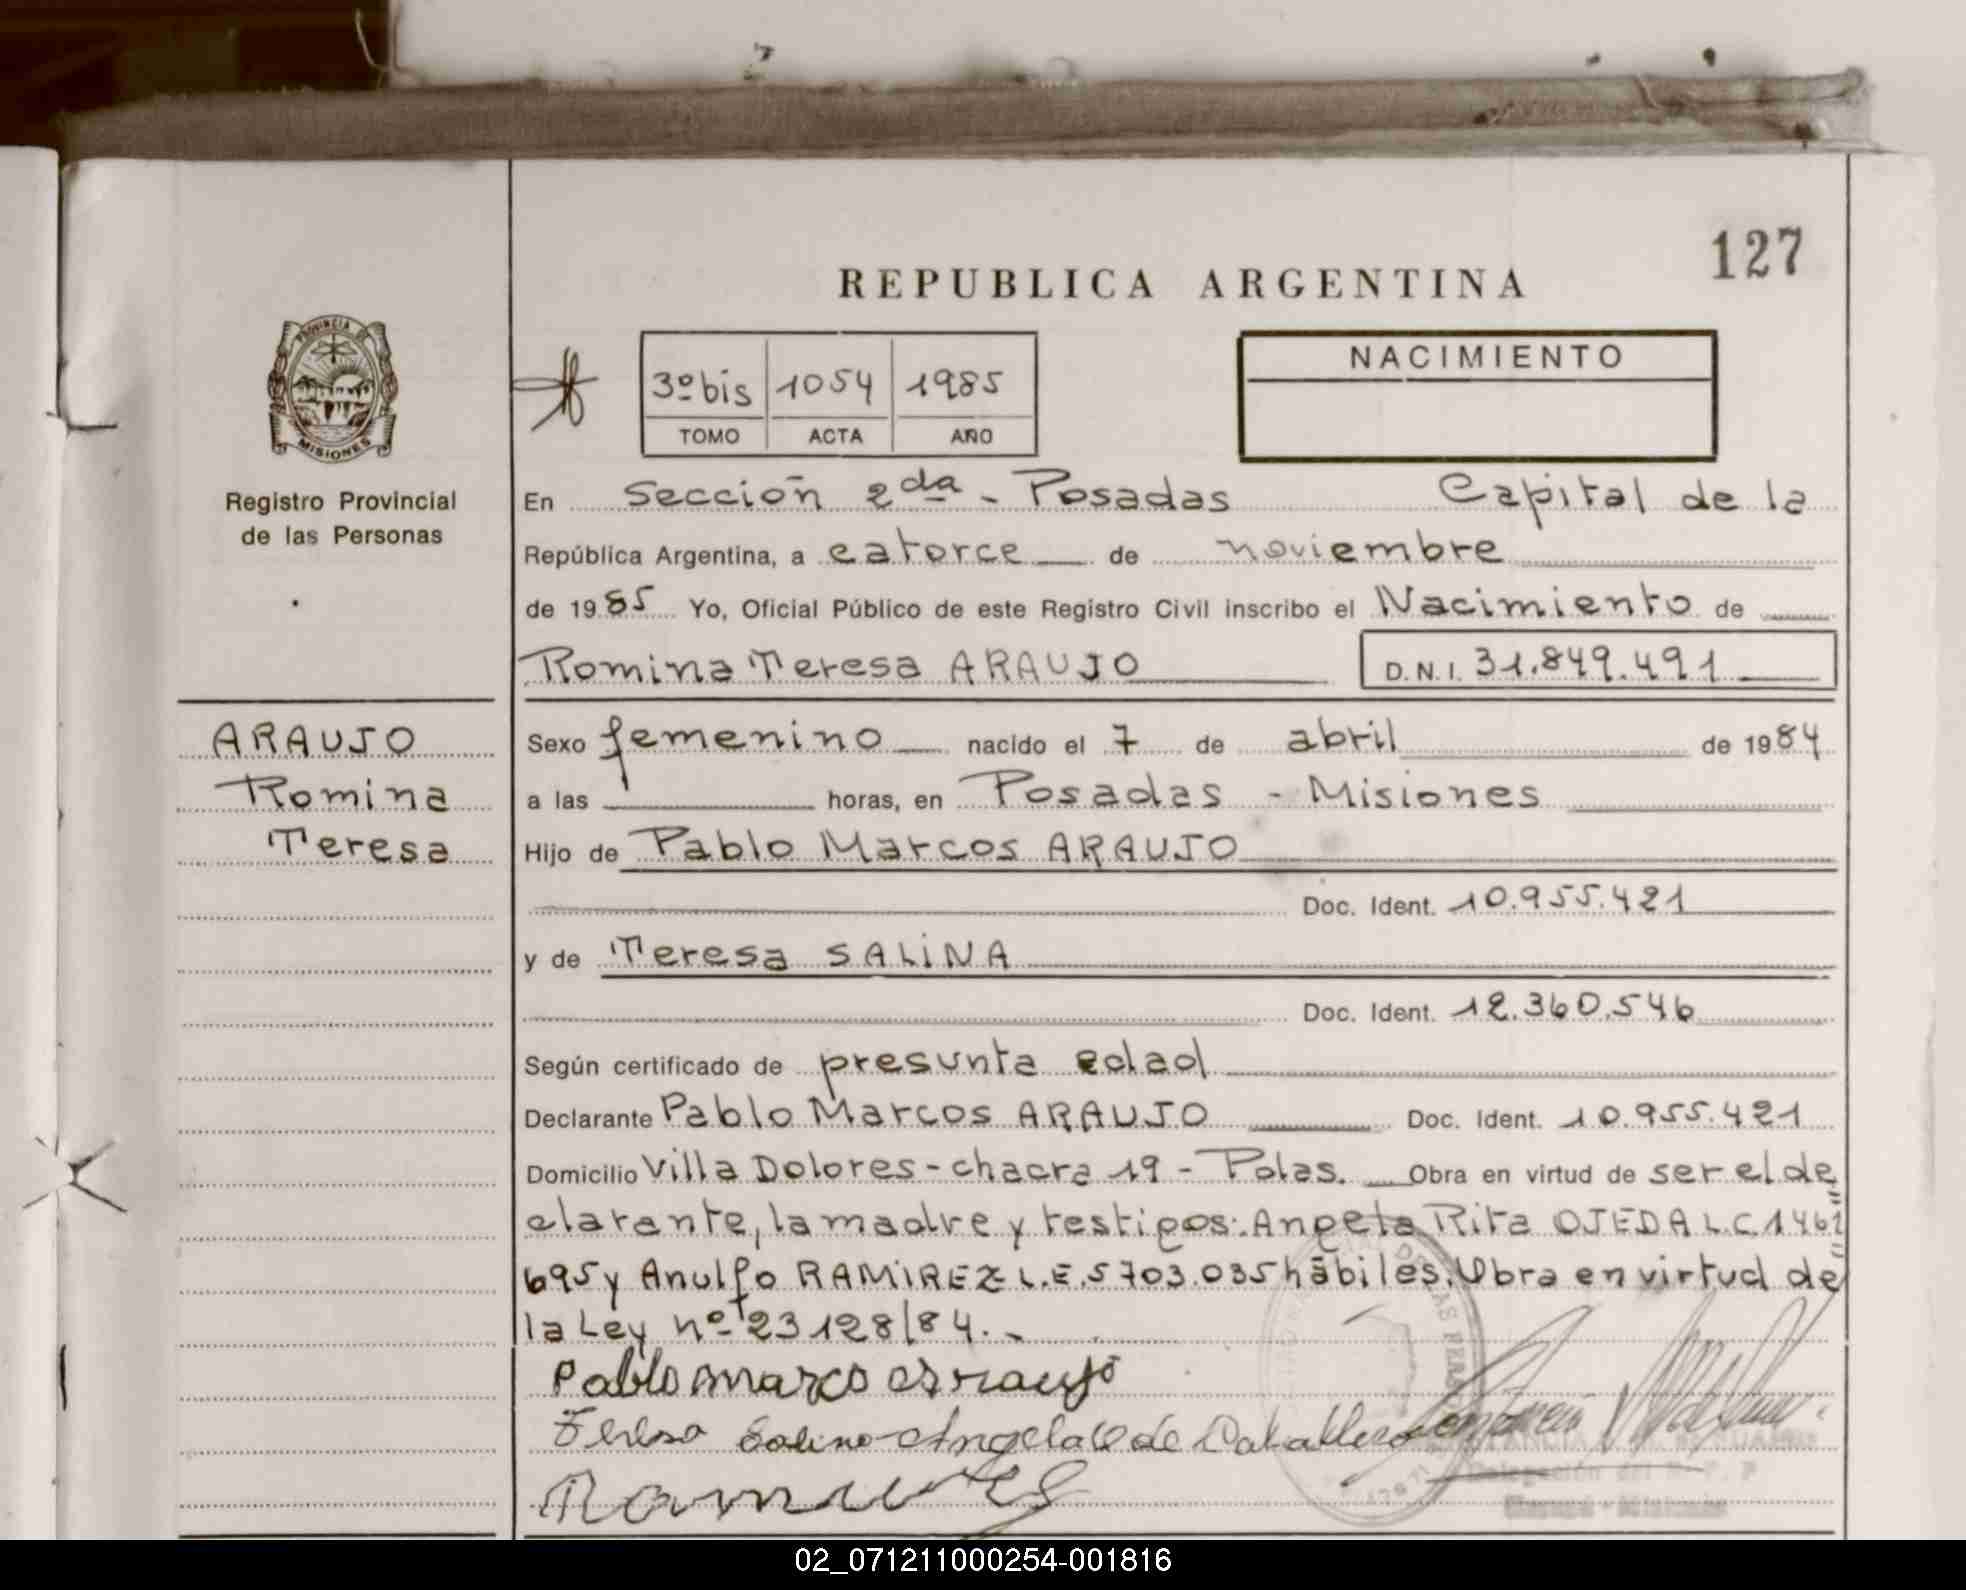 127
REPUBLICA ARGENTINA
PROVINCIA DE
MISIONES
Registro Provincial
de las Personas
3º bis 1054 1985
TOMO ACTA AÑO
NACIMIENTO
En Sección 2da - Posadas Capital de la
República Argentina, a catorce de noviembre
de 1985 Yo, Oficial Público de este Registro Civil inscribo el Nacimiento de
Romina Teresa ARAUJO D.N.I. 31.849.491
ARAUJO
Romina
Teresa
Sexo femenino nacido el 7 de abril de 1984
a las horas, en Posadas - Misiones
Hijo de Pablo Marcos ARAUJO
Doc. Ident. 10.955.421
y de Teresa SALINA
Doc. Ident. 12.360.546
Según certificado de presunta edad
Declarante Pablo Marcos ARAUJO Doc. Ident. 10.955.421
Domicilio Villa Dolores - chacra 19 - Pdas. Obra en virtud de ser el de
clarante, la madre y testigos: Angela Rita OJEDA L.C. 1461
695 y Anulfo RAMIREZ L.E. 5703.035 hábiles. Obra en virtud de
la Ley nº 23128/84.
Pablo marco araujo
Teresa Salina Angela de Caballero
Ramirez
Delegación del R. P. P
02_071211000254-001816